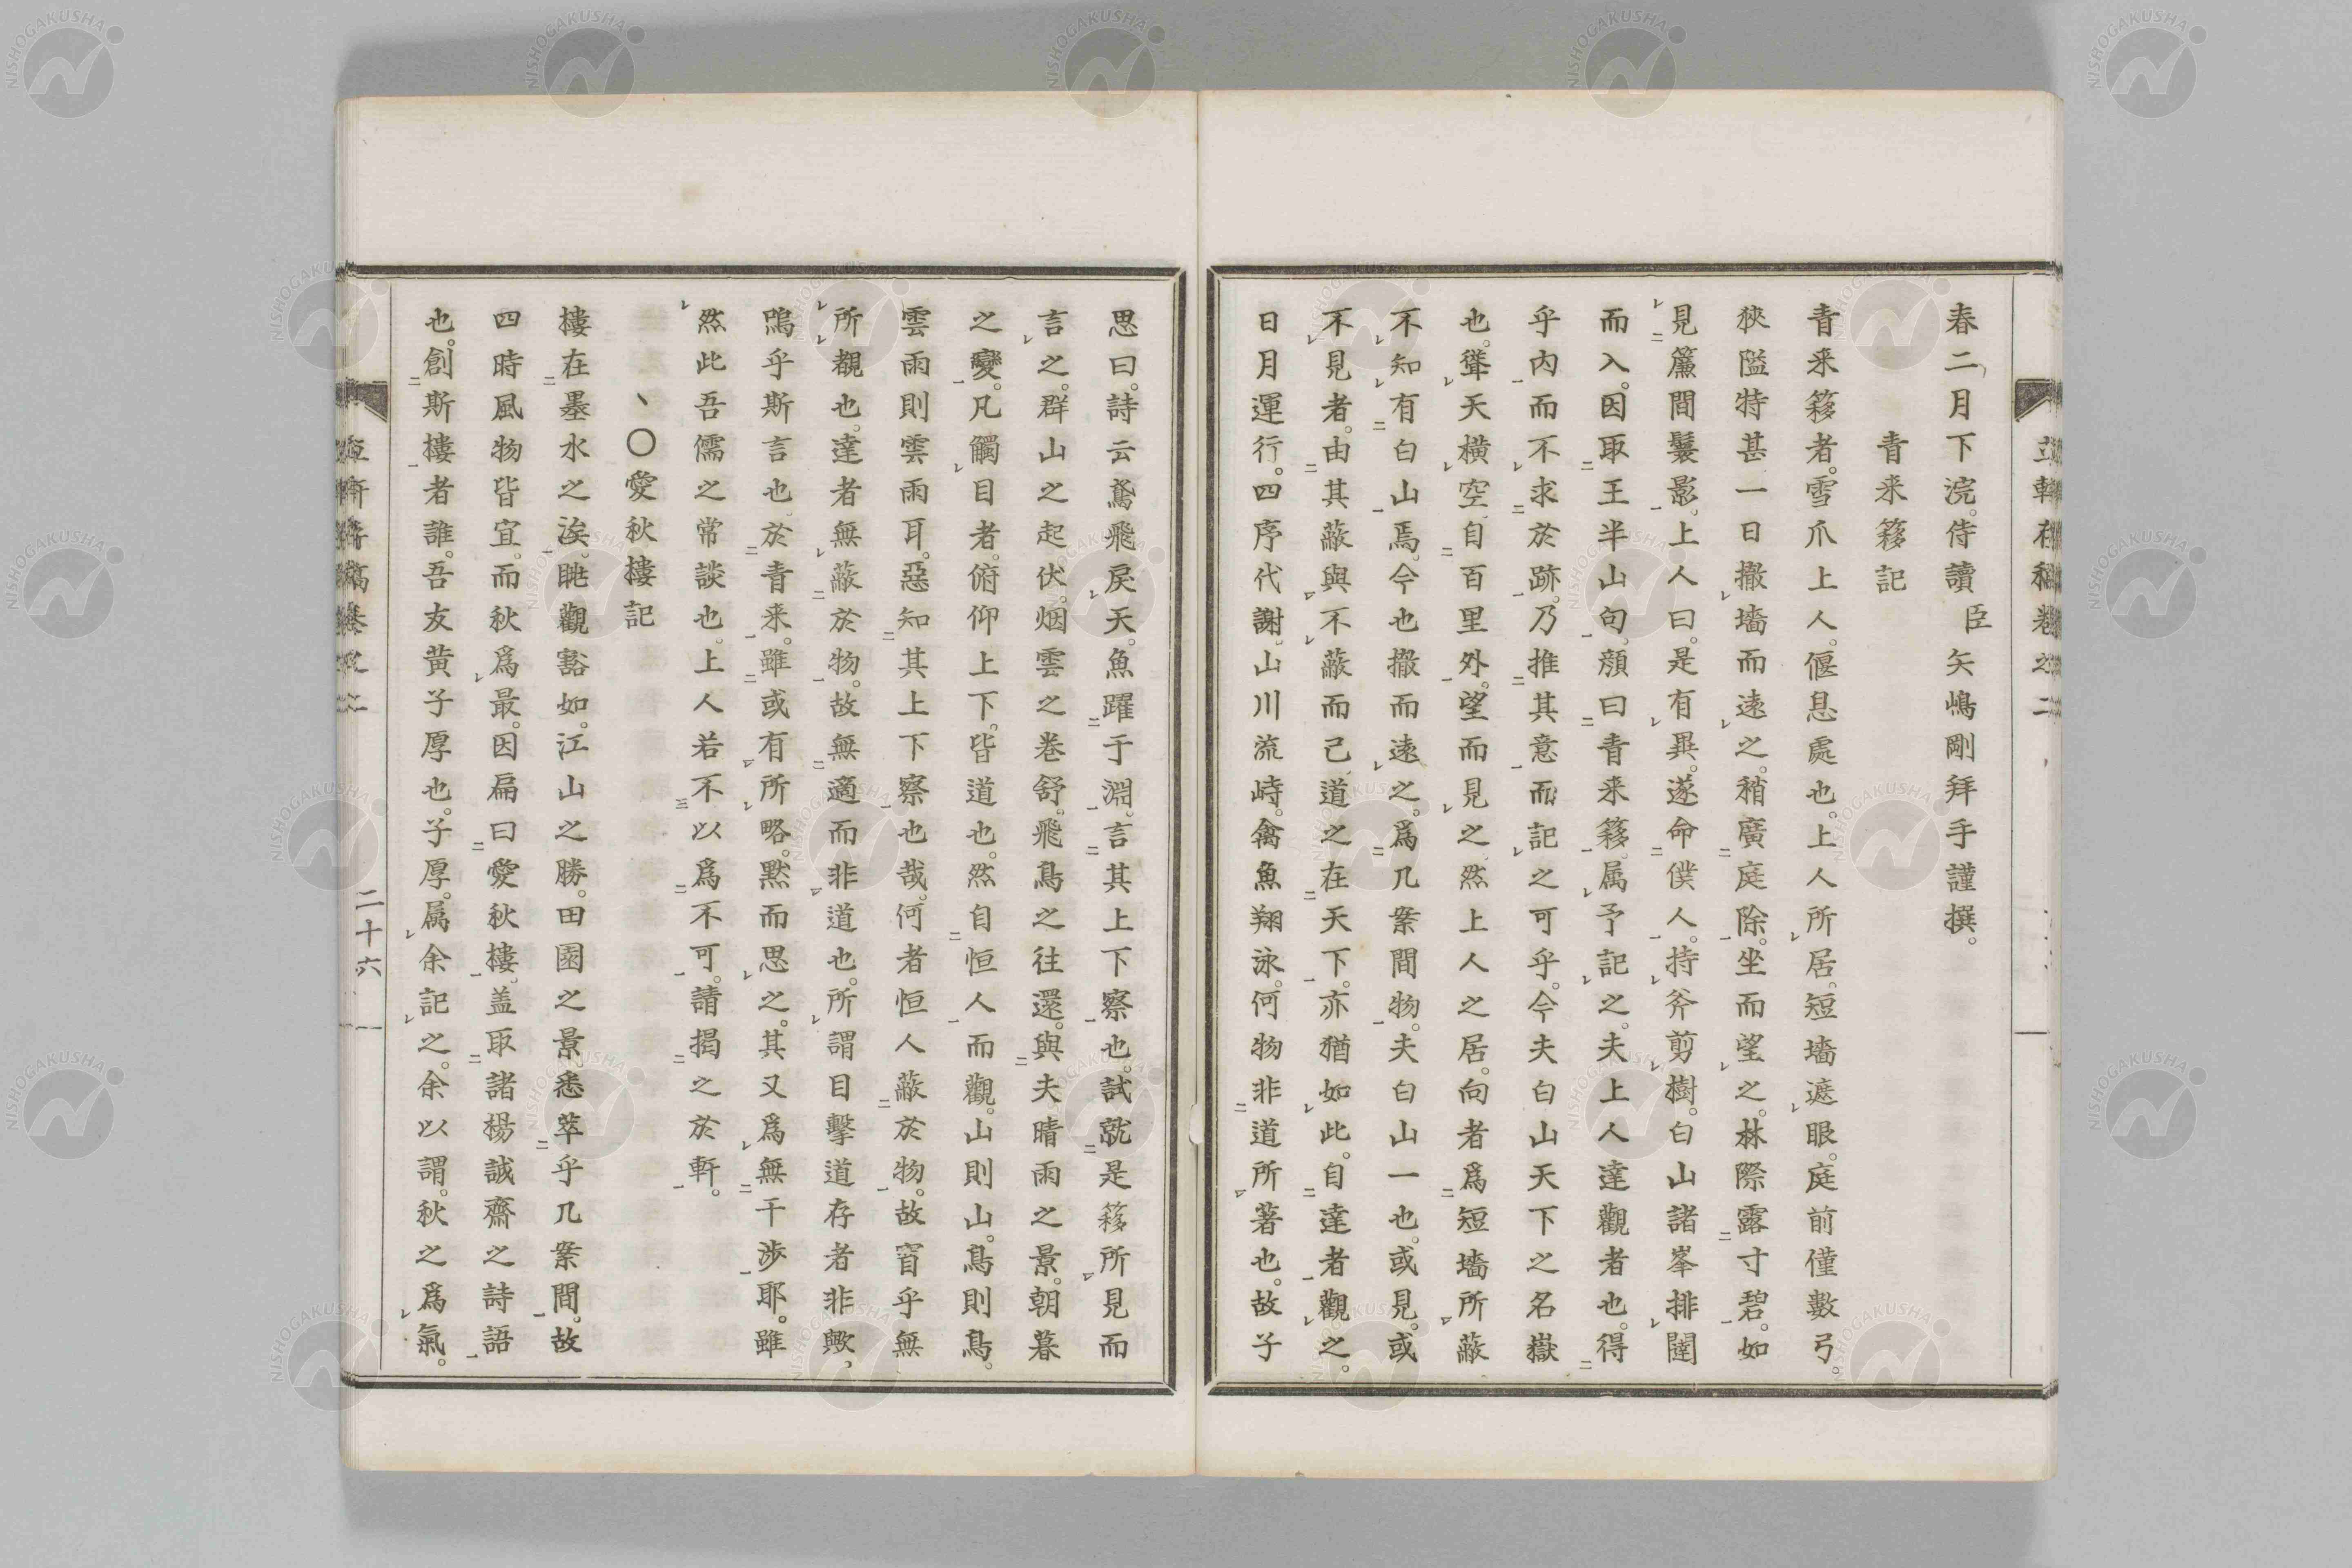 春二月下浣。侍讀臣矢嶋剛拜手謹撰。
青来簃記
青来簃者。雪爪上人。偃息處也。上人所居。短墻遮眼。庭前僅數弓。
狹隘特甚一日撤墻而遠之。稍廣庭除。坐而望之。林際露寸碧。如
見簾間鬟影。上人曰。是有異。遂命僕人。持斧剪樹。白山諸峯排闥
而入。因取王半山句。顔曰青来簃。属予記之。夫上人達觀者也。得
乎内而不求於跡。乃推其意而記之可乎。今夫白山天下之名嶽
也。聳天横空。自百里外。望而見之。然上人之居。向者爲短墻所蔽
不知有白山焉。今也撤而遠之。爲几案間物。夫白山一也。或見。或
不見者。由其蔽與不蔽而已道之在天下。亦猶如此。自達者觀之。
日月運行。四序代謝。山川流峙。禽魚翔泳。何物非道所著也。故子
思曰。詩云鳶飛戻天。魚躍于淵。言其上下察也。試就是簃所見而
言之。群山之起伏。烟雲之卷舒。飛鳥之往還。與夫晴雨之景。朝暮
之變。凡觸目者。俯仰上下。皆道也。然自恒人而觀。山則山。鳥則鳥。
雲雨則雲雨耳。惡知其上下察也哉。何者恒人蔽於物。故窅乎無
所覩也。達者無蔽於物。故無適而非道也。所謂目擊道存者非歟、
嗚乎斯言也。於青来。雖或有所略。黙而思之。其又爲無干渉耶。雖
然此吾儒之常談也。上人若不以爲不可。請掲之於軒。
、〇愛秋樓記
樓在墨水之涘。眺觀豁如。江山之勝。田園之景。悉萃乎几案間。故
四時風物皆宜。而秋爲最。因扁曰愛秋樓。盖取諸楊誠齋之詩語
也。創斯樓者誰。吾友黄子厚也。子厚。属余記之。余以謂。秋之爲氣。
二十六